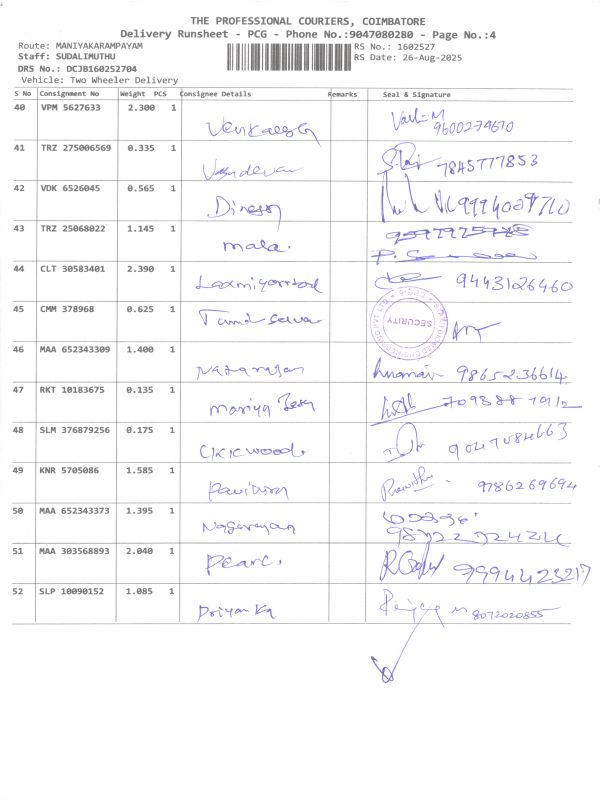 THE PROFESSIONAL COURIERS, COIMBATORE
Delivery Runsheet - PCG - Phone No.:9047080280 - Page No.:4
Route: MANIYAKARAMPAYAM RS No.: 1602527
Staff: SUDALIMUTHU RS Date: 26-Aug-2025
DRS No.: DCJB160252704
Vehicle: Two Wheeler Delivery
S No Consignment No Weight PCS Consignee Details Remarks Seal & Signature
40 VPM 5627633 2.300 1
9600274670
41 TRZ 275006569 0.335 1 Vasudevan 7845777853
42 VDK 6526045 0.565 1
43 TRZ 25068022 1.145 1 mala.
44 CLT 30583401 2.390 1 9443126460
45 CMM 378968 0.625 1 Tamil selva SECURITY
46 MAA 652343309 1.400 1 Nagarajan 9865236614
47 RKT 10183675 0.135 1 Mariya
48 SLM 376879256 0.175 1 9047084663
49 KNR 5705086 1.585 1 Pavithra 9786269694
50 MAA 652343373 1.395 1
51 MAA 303568893 2.040 1 Pearl. 9994423217
52 SLP 10090152 1.085 1 Priyanka 8072020855